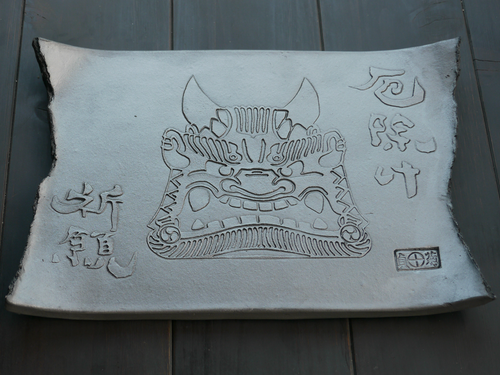 厄除け
祈願